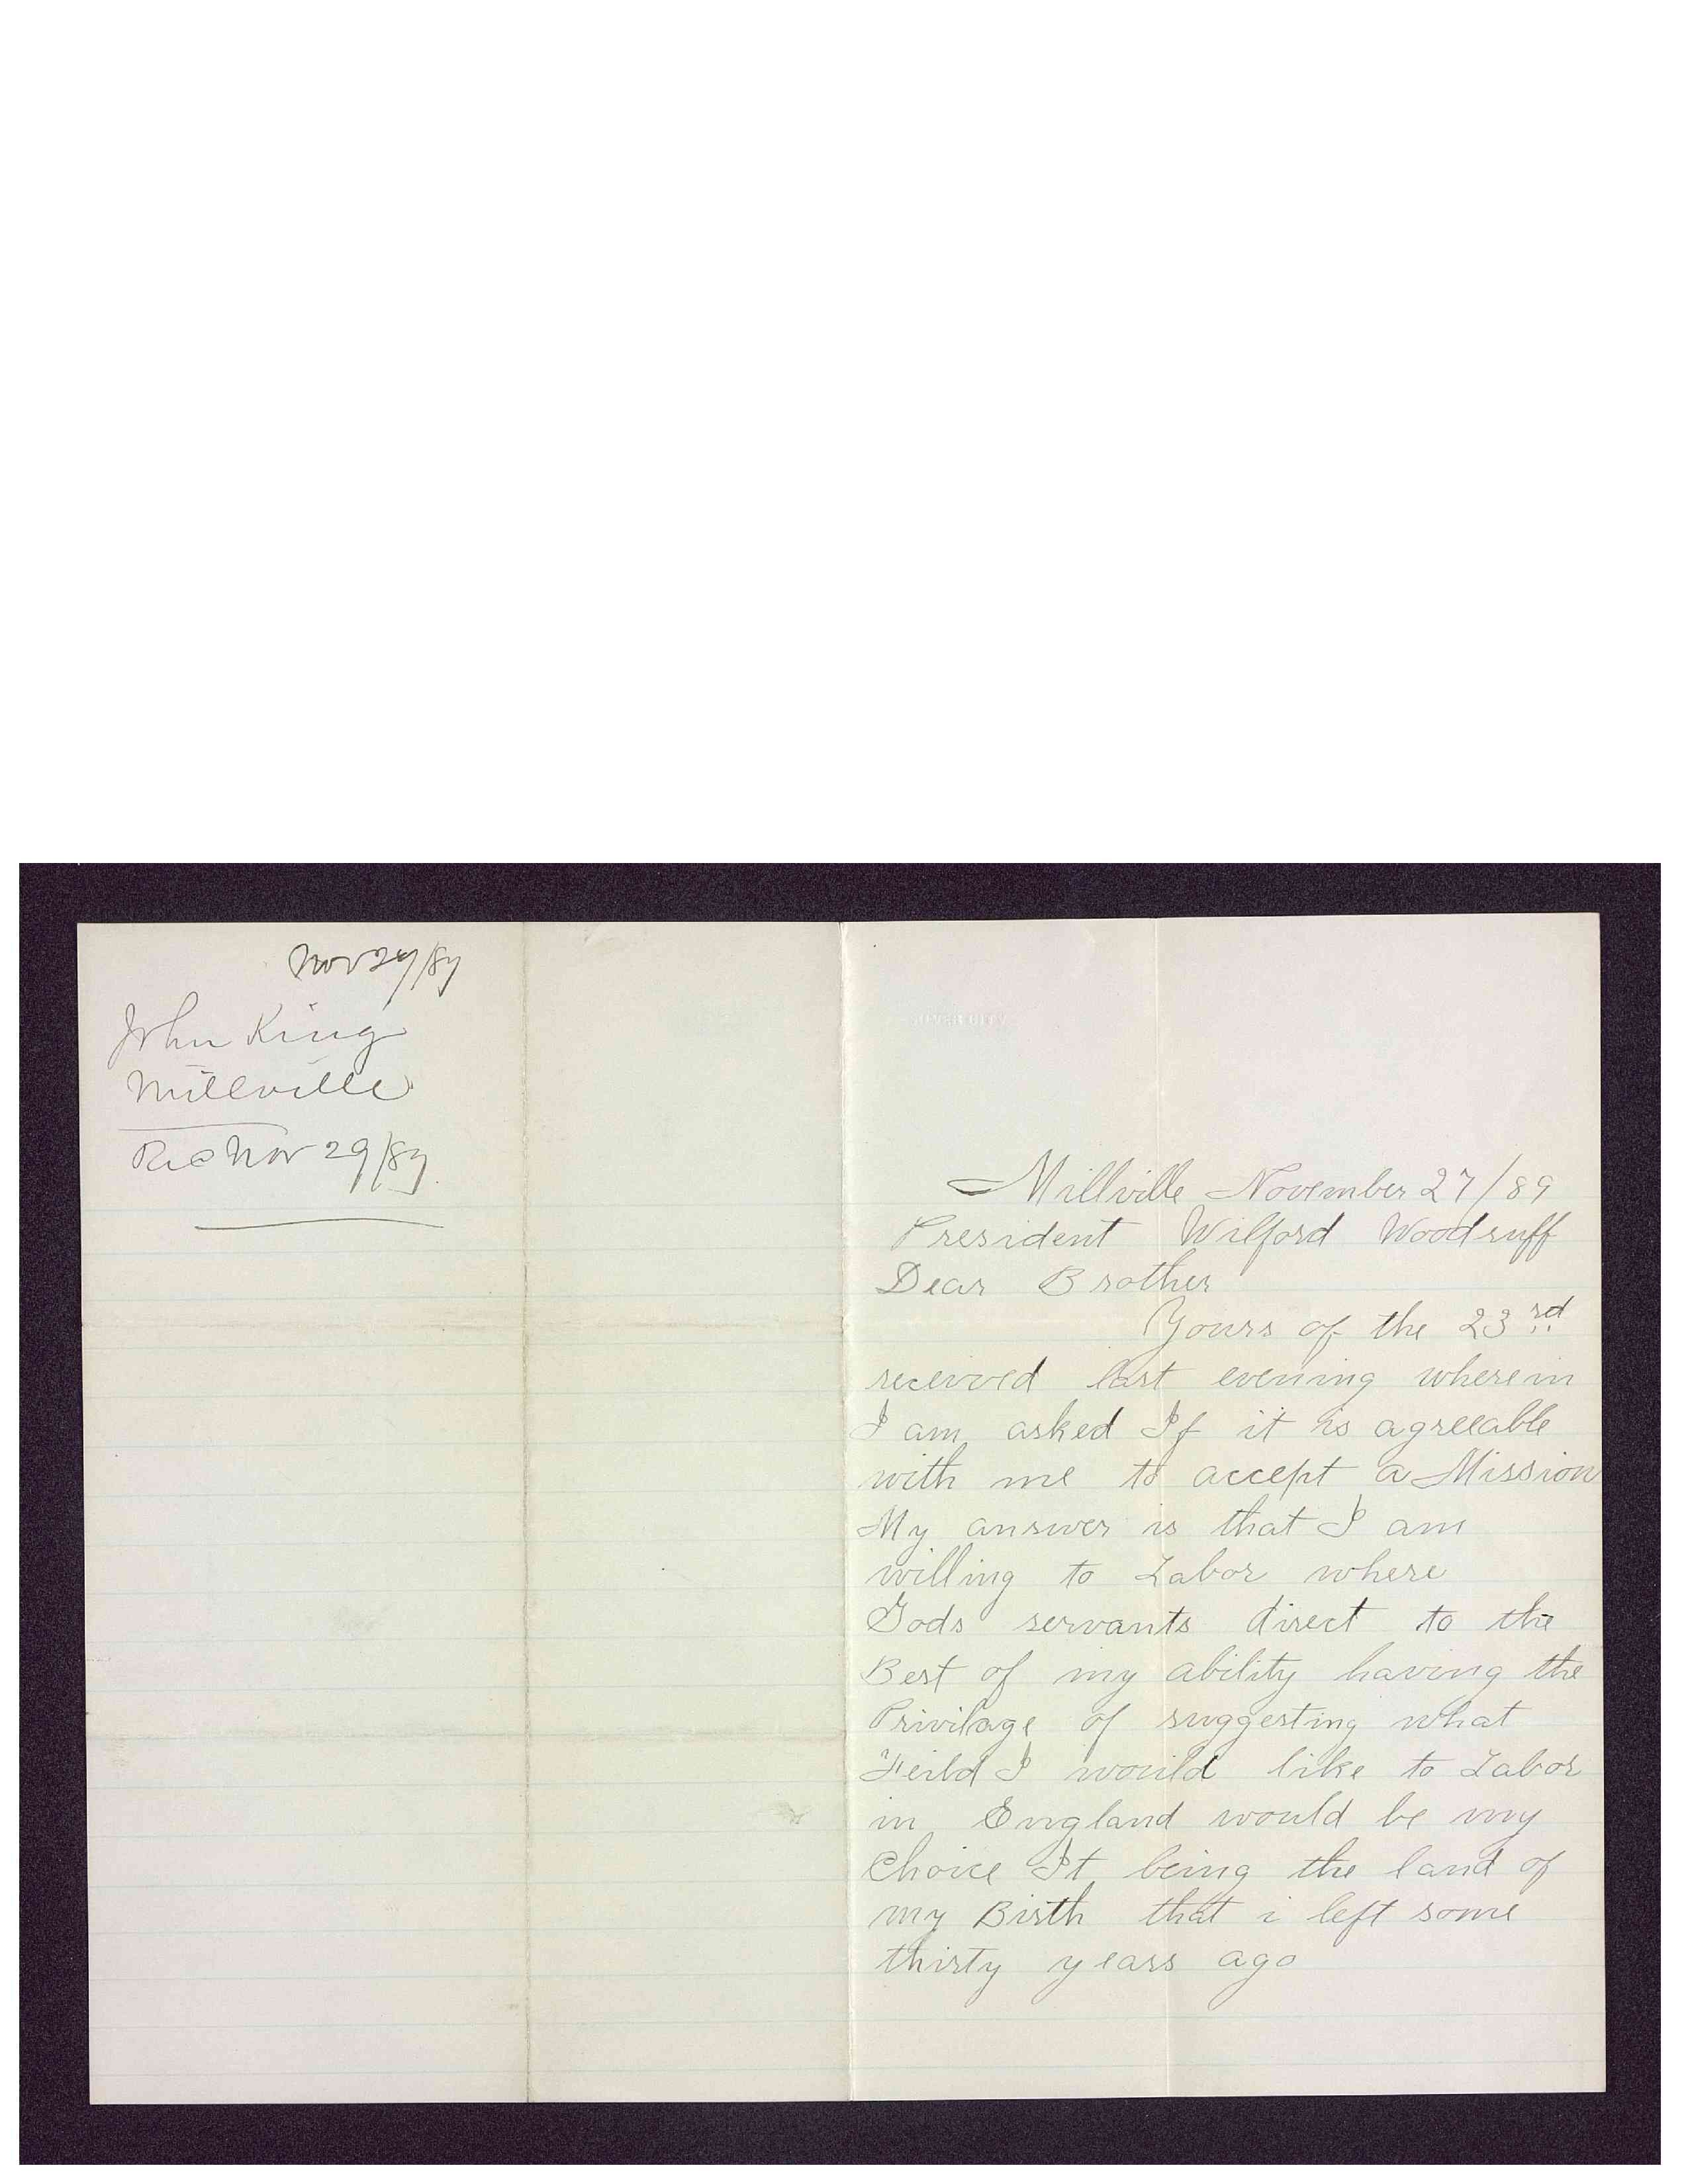 Nov 27/89
John King
Millville
Rec Nov 29/89
Millville November 27/89
President Wilford Woodruff
Dear Brother
Yours of the 23rd
received last evening wherein
I am asked If it is agreeable
with me to accept a Mission
My answer is that I am
willing to Labor where
Gods servants direct to the
Best of my ability having the
Privilage of suggesting what
Feild I would like to Labor
in England would be my
Choice It being the land of
my Birth that i left some
thirty years ago